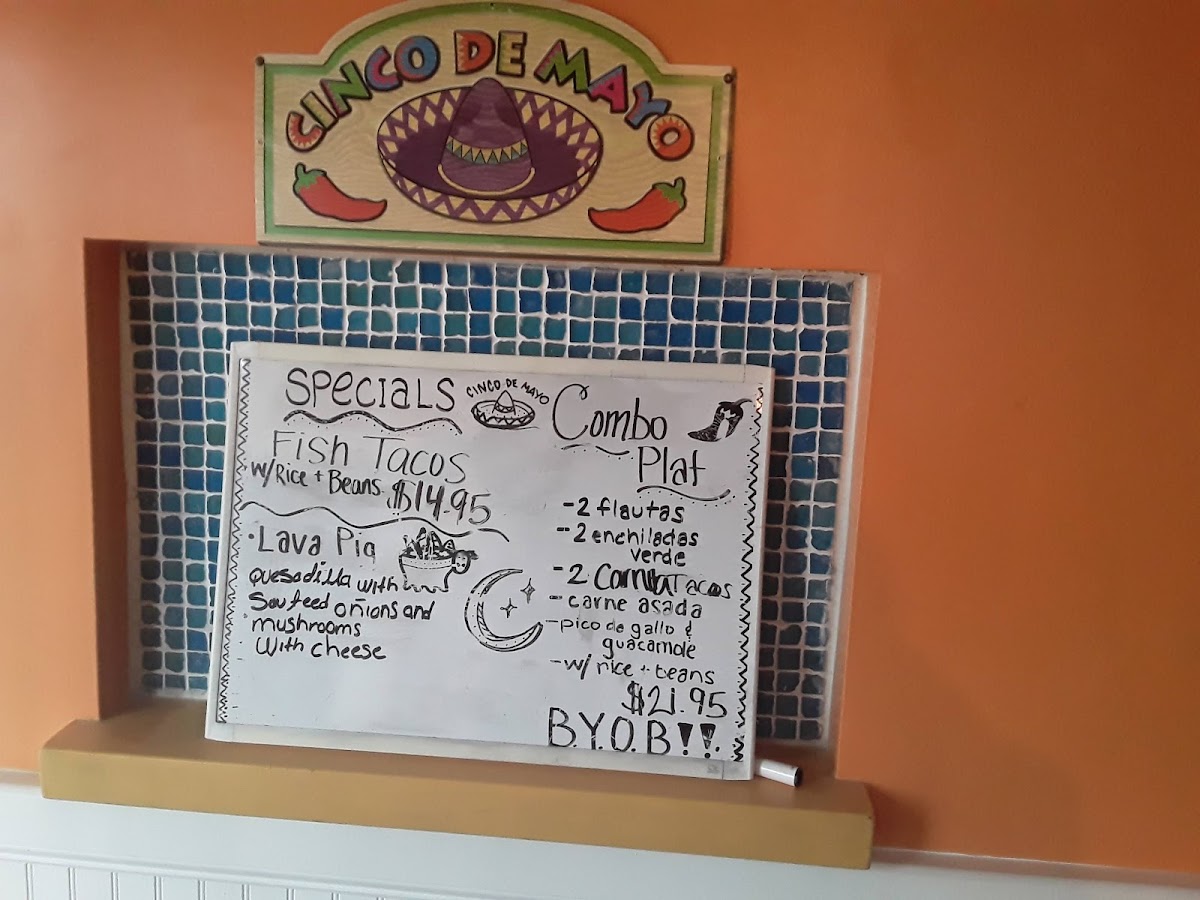 CINCO DE MAYO
SPECIALS
Fish Tacos
w/Rice + Beans $14.95
• Lava Piq
Quesadilla with
Souteed oñions and
mushrooms
With cheese
CINCO DE MAYO
Combo
Plat
- 2 flautas
- 2 enchiladas
verde
- 2 Tacos
- carne asada
- pico de gallo &
guacamole
- w/ rice + beans
$21.95
B.Y.O.B!!